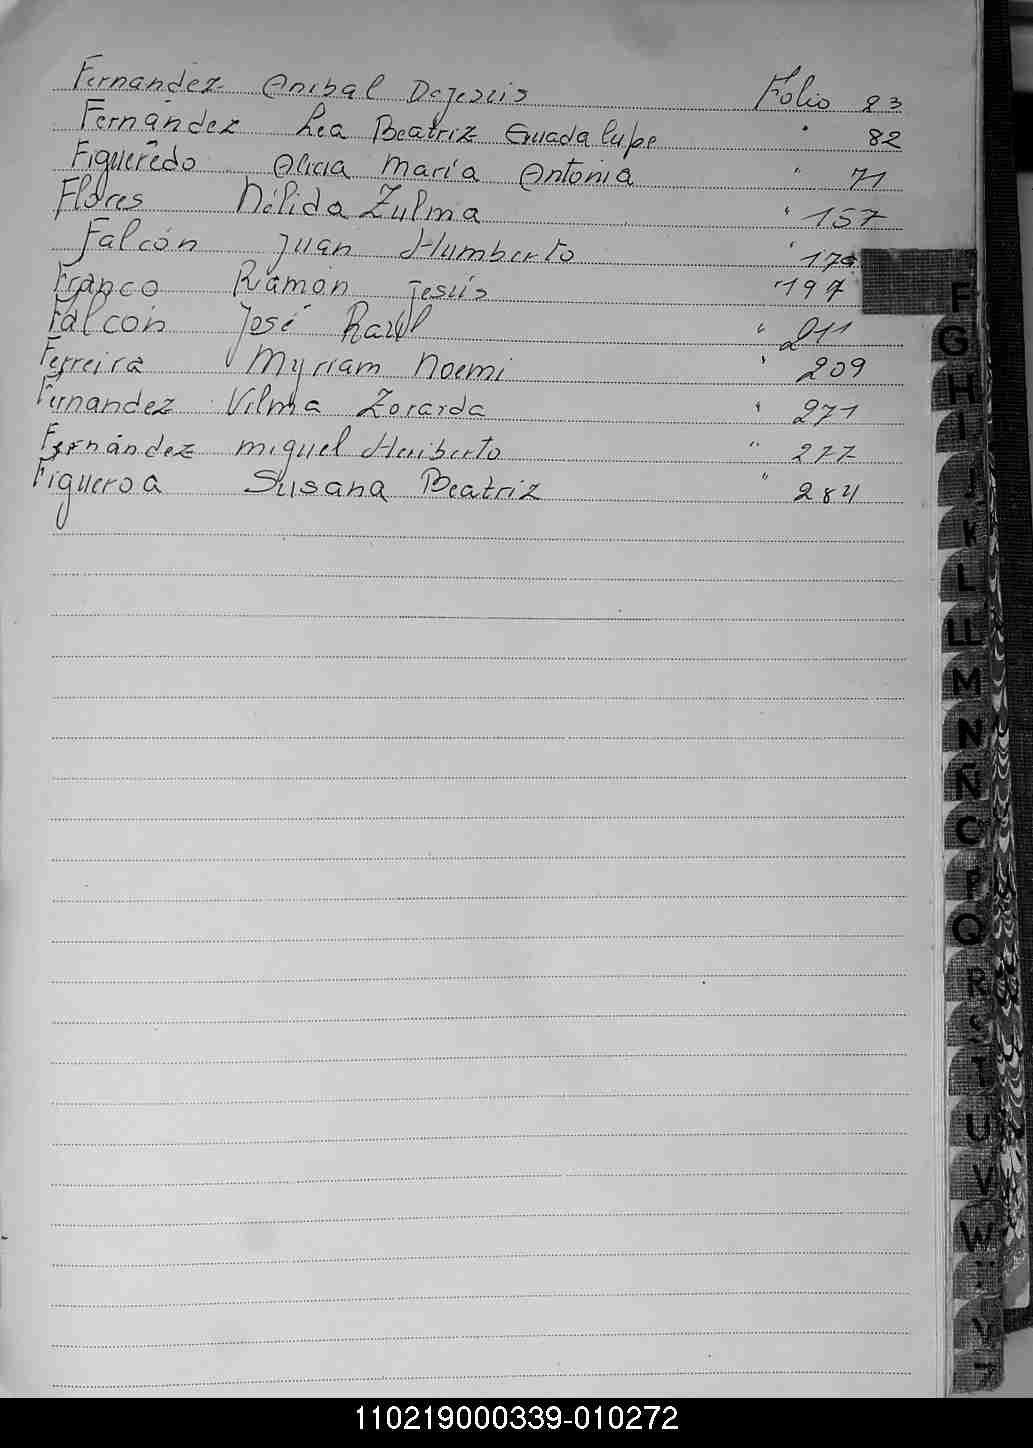 Fernandez Anibal Dejesús Folio 83
Fernández Lea Beatriz Guadalupe " 82
Figueredo Alicia María Antonia " 71
Flores Nélida Zulma " 157
Falcón Juan Humberto "
Franco Ramón Jesús " 197
Falcón José Raúl " 211
Ferreira Myriam Noemi " 209
Fernandez Vilma Zoraida " 271
Fernández Miguel Heriberto " 277
Figueroa Susana Beatriz " 284
F
G
H
I
J
K
L
LL
M
N
Ñ
O
P
Q
R
S
T
U
V
W
Y
Z
110219000339-010272